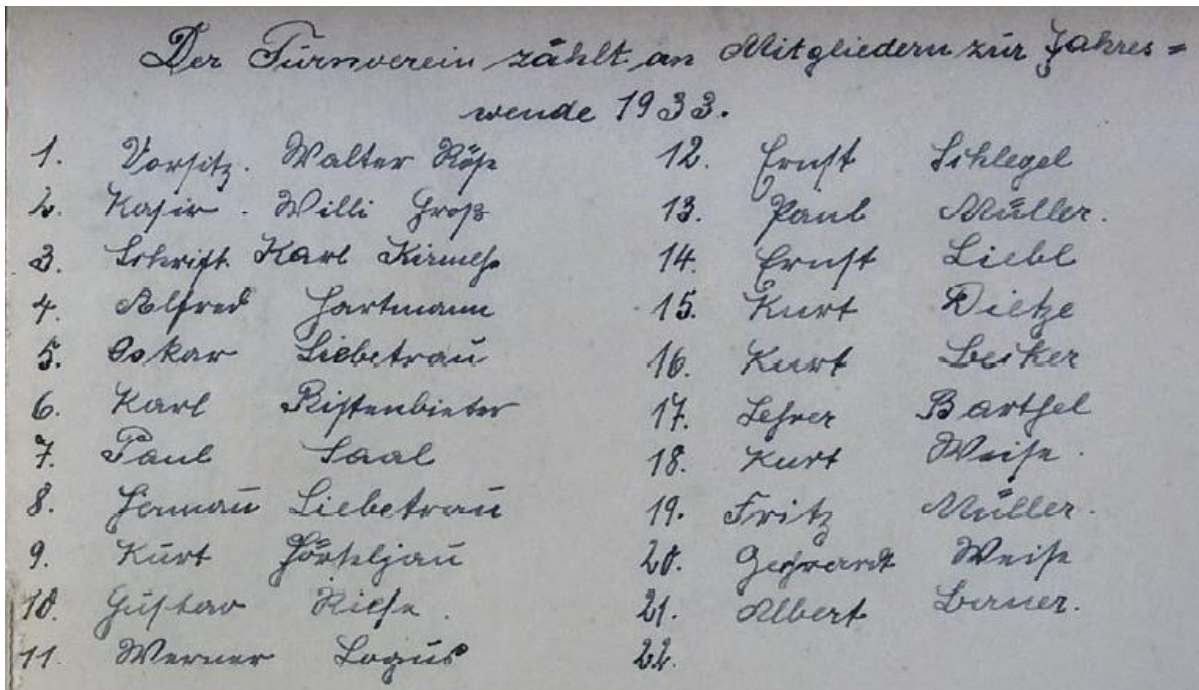 Der Turnverein zählt an Mitgliedern zur Jahres=
wende 1933.
1. Vorsitz. Walter Röse
2. Kasir. Willi Groß
3. Schrift. Karl Kirmse
4. Alfred Hartmann
5. Oskar Liebetrau
6. Karl Ristenbieter
7. Paul Saal
8. Hermañ Liebetrau
9. Kurt
10. Gustav
11. Werner Logus
12. Ernst Schlegel
13. Paul Müller.
14. Ernst Liebl
15. Kurt Dietze
16. Kurt Becker
17. Lehrer Barthel
18. Kurt Weise.
19. Fritz Müller.
20. Gerhardt Weise
21. Albert
22.